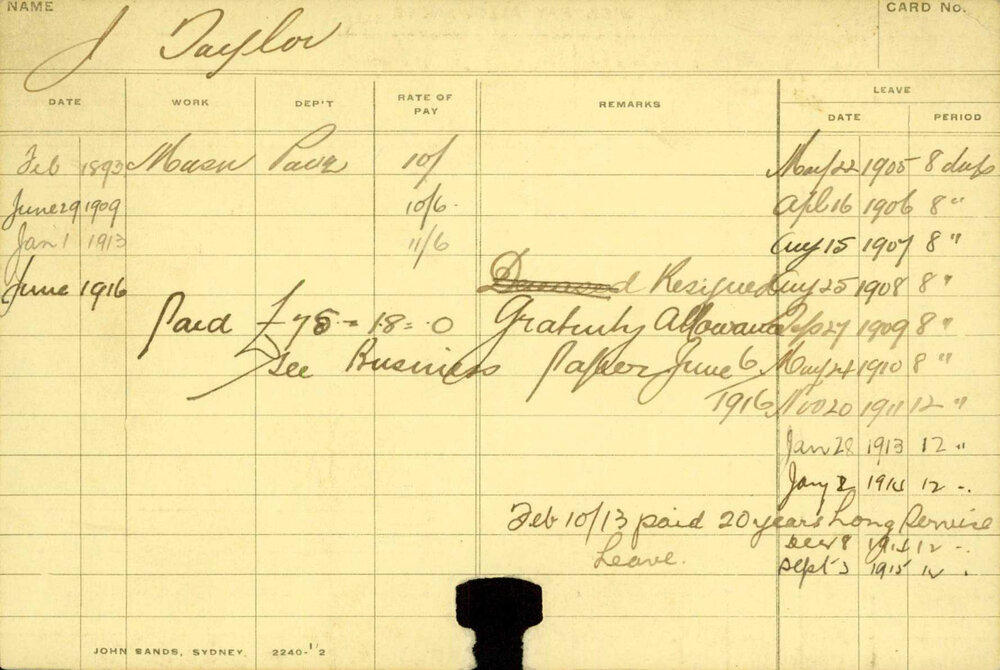 NAME CARD No.
J Taylor
DATE WORK DEP'T RATE OF PAY REMARKS LEAVE
DATE PERIOD
Feb 1893 Mason 10/ May 22 1905 8 days
June 29 1909 10/6 Apl 16 1906 8 "
Jan 1 1913 11/6 Aug 15 1907 8 "
June 1916 Deceased Resigned Aug 25 1908 8 "
Paid £75-18-0 Gratuity Allowance Sep 27 1909 8 "
See Business Paper June 6 May 24 1910 8 "
1916 Nov 20 1911 12 "
Jan 28 1913 12 "
Jany 2 1914 12 "
Feb 10/13 paid 20 years Long Service
Leave. Decr 8 1914 12 "
Sept 3 1915 12 "
JOHN SANDS, SYDNEY. 2240-1/2